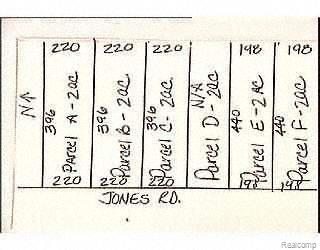 220 220 220 198 198
N↑
396
PARCEL A - 2ac
396
Parcel B - 2ac
396
Parcel C - 2ac.
N/A
Parcel D - 2ac
440
Parcel E - 2 AC
440
Parcel F - 2ac.
220 220 220 198 198
JONES RD.
Realcomp